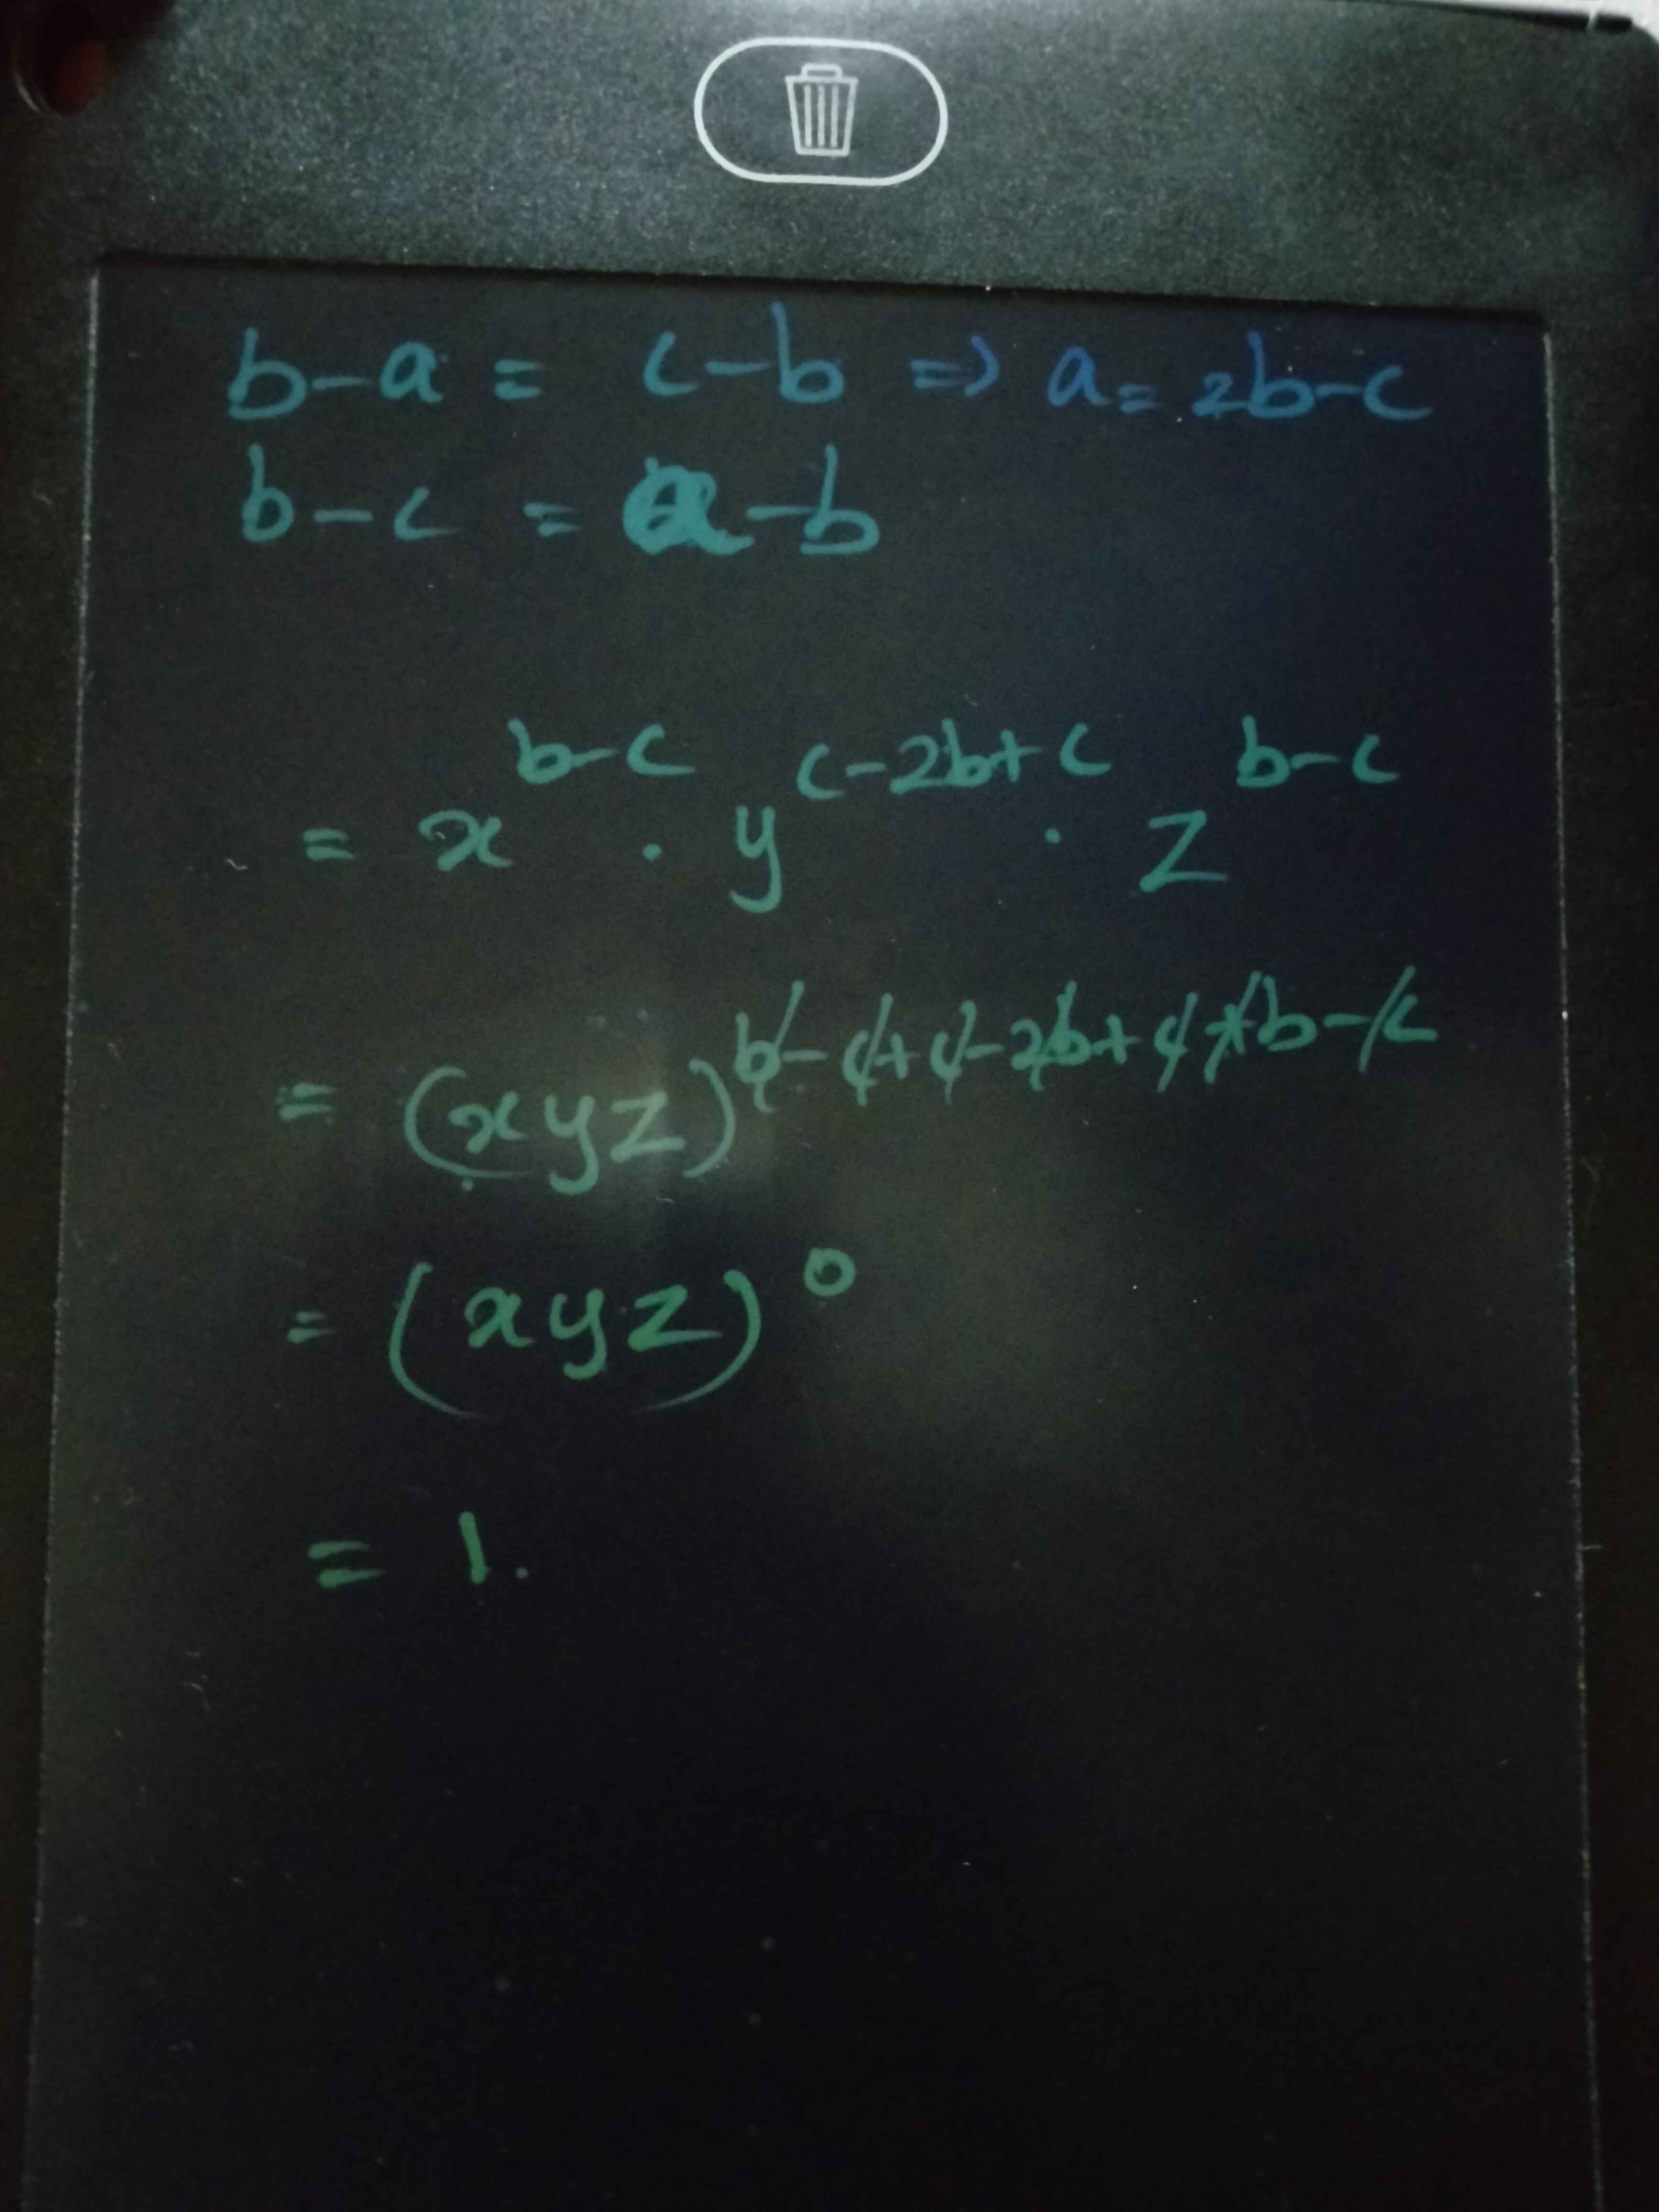 b-a = c-b => a = 2b-c
b-c = a-b
= x^{b-c} . y^{c-2b+c} . z^{b-c}
= (xyz)^{b-c+c-2b+c+b-c}
= (xyz)^0
= 1.